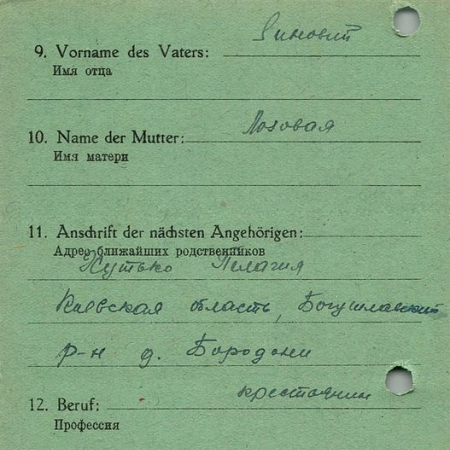 9. Vorname des Vaters: Зиновий
Имя отца
10. Name der Mutter: Лозовая
Имя матери
11. Anschrift der nächsten Angehörigen:
Адрес ближайших родственников
Кутько Пелагия
Киевская область, Богуславский
р-н д. Бородани
12. Beruf: крестьянин
Профессия